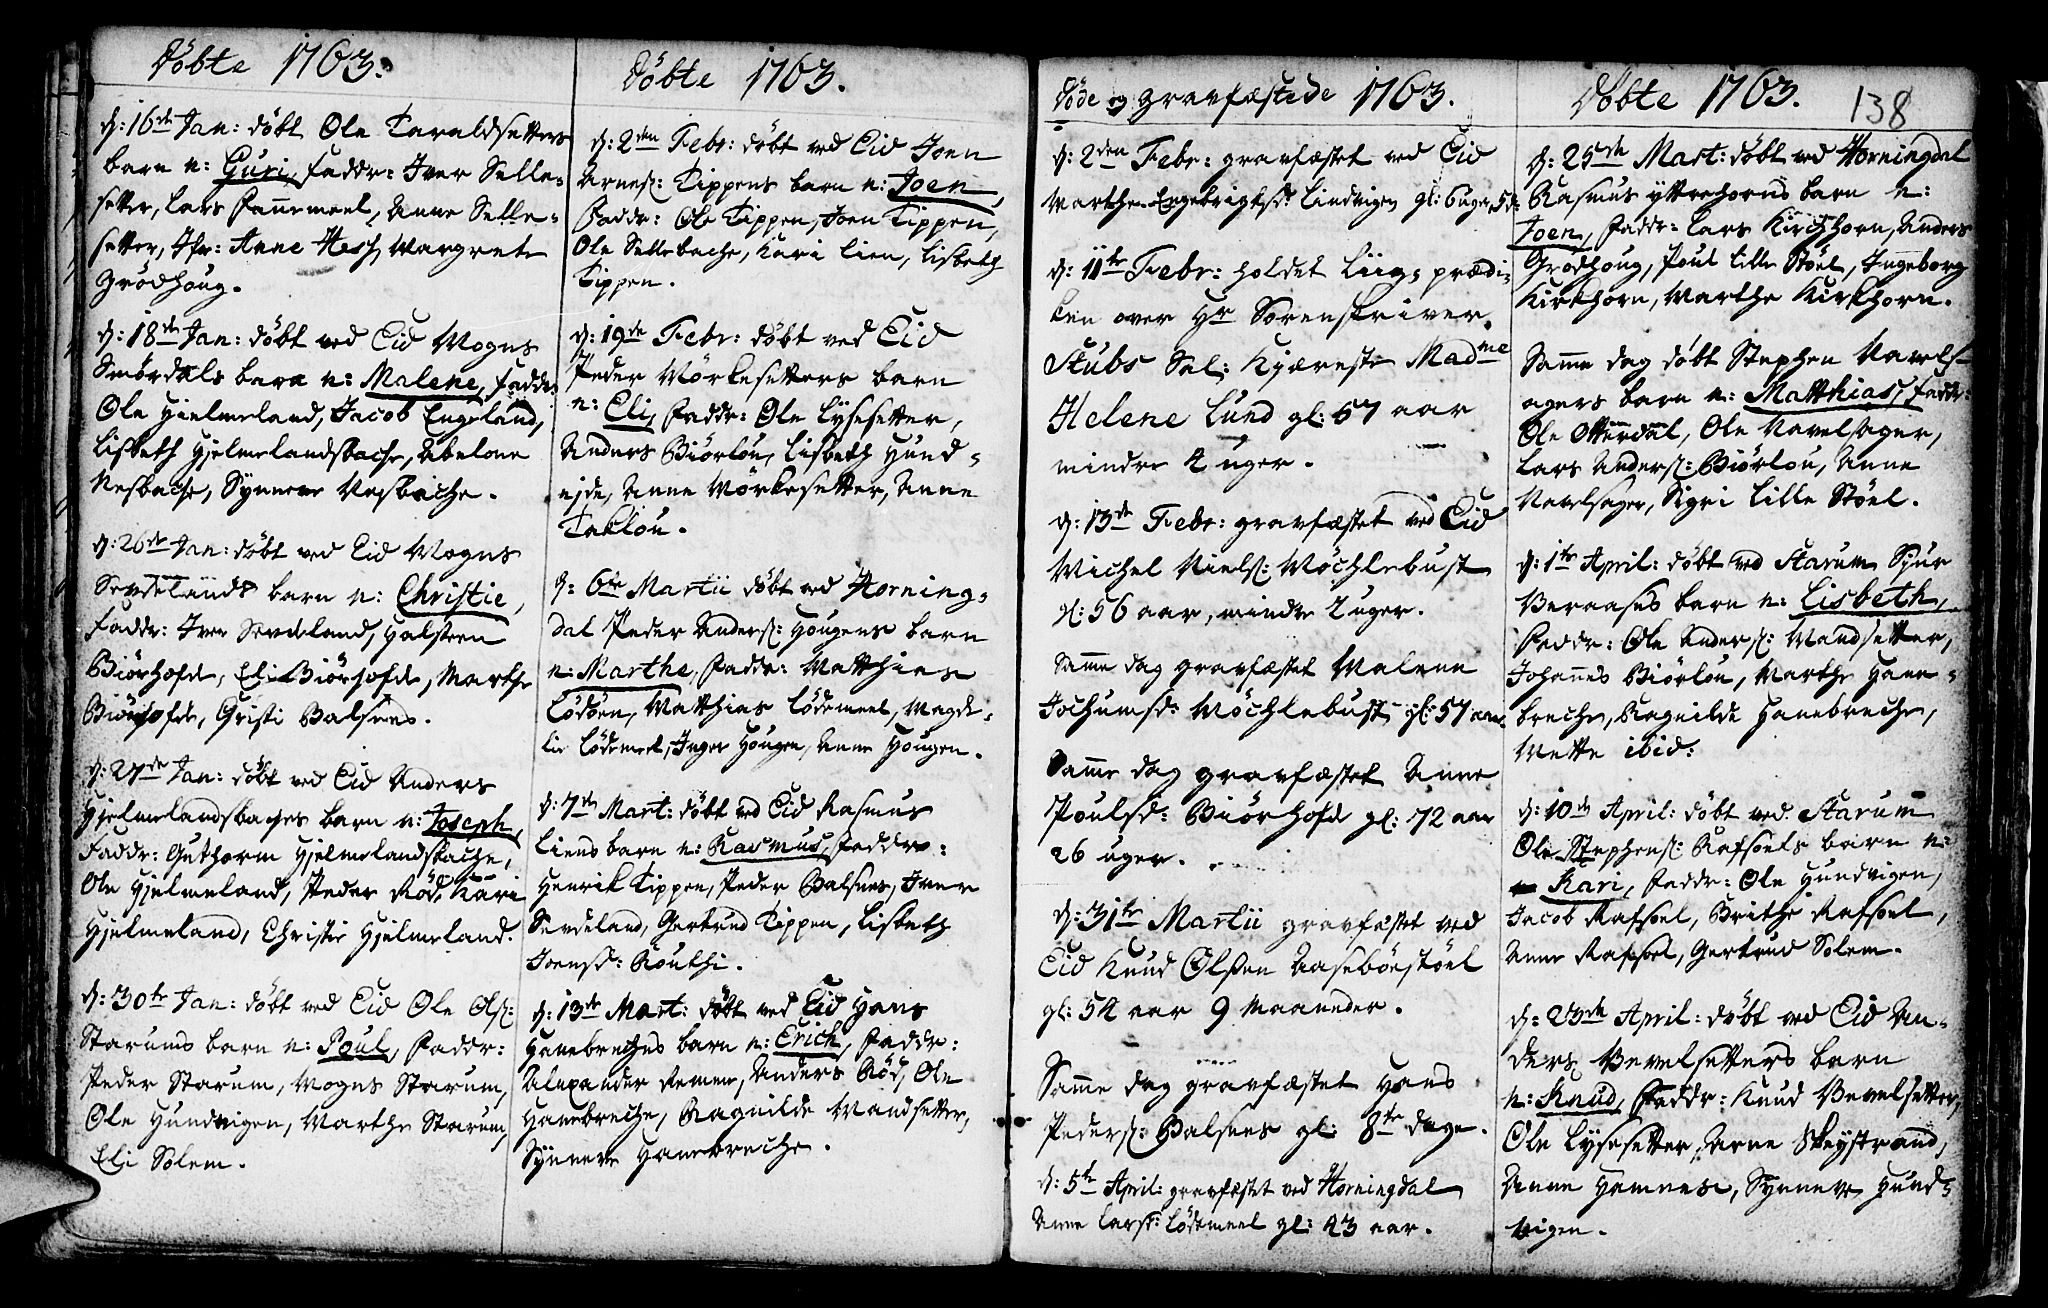 Døbte 1763.
d: 16de Jan: døbt Ole Taraldsetters
barn n: Guri, Faddr: Iver Selle-
setter, Lars Pannemeel, Anne Selle-
setter, Jfr: Anne Hesch, Margrete
Grodhoug.
d: 18de Jan: døbt ved Eid Mogns
Smørdals barn n: Malene, Fadder
Ole Hielmeland, Jacob Engeland,
Lisbeth Hjelmelandsbache, Abelone
Nesbache, Synneve Nesbache.
d: 26de Jan: døbt ved Eid Mogns
Sevdelands barn n: Christie,
Faddr: Iver Sevdeland, Halsteen
Biørhofde, Eli Biørhofde, Marthe
Biørhofde, Christi Balsnes.
d: 27de Jan: døbt ved Eid Anders
Hjelmelandsbaches barn n: Joseph,
Faddr: Guthorm Hjelmelandsbache,
Ole Hjelmeland, Peder Rød, Kari
Hjelmeland, Christie Hjelmeland.
d: 30te Jan: døbt ved Eid Ole Ols:
Starums barn n: Poul, Faddr:
Peder Starum, Mogns Starum,
Ole Hundvigen, Marthe Starum,
Eli Solem.
Døbte 1763.
d: 2den Febr: døbt ved Eid Joen
Arnes: Tippens barn n: Joen,
Faddr: Ole Tippen, Joen Tippen,
Ole Sellebache, Kari Lien, Lisbeth
Tippen.
d: 19de Febr: døbt ved Eid
Peder Mørkesetters barn
n: Eli, Faddr: Ole Lysesetter,
Anders Biørlou, Lisbeth Hund-
ejde, Anne Mørkesetter, Anne
Taklou.
d: 6te Martii døbt ved Horning-
dal Peder Anders: Hougens barn
n: Marthe, Faddr: Matthias
Lødøen, Matthias Lødemeel, Magde-
lie Lødemeel, Inger Hougen, Anne Hougen.
d: 7de Mart: døbt ved Eid Rasmus
Liens barn n: Rasmus, Faddre:
Henrik Tippen, Peder Balsnes, Iver
Sevdeland, Gertrud Tippen, Lisbeth
Joensd: Routhi.
d: 13de Mart: døbt ved Eid Hans
Hanebreches barn n: Erich, Faddr:
Alexander Remen, Anders Rød, Ole
Hanebreche, Ragnilde Mandsetter,
Synneve Hanebreche.
Døde og gravfæstede 1763.
d: 2den Febr: gravfæstet ved Eid
Marthe Engebrigtsd: Lindvigen gl: 6 uger, 5 d:
d: 11te Febr: holdet Liig-prædi-
ken over Hr Sorenskriver
Stubs Sal: Kjæreste Madme
Helene Lund gl: 57 aar
mindre 4 uger.
d: 13de Febr: gravfæstet ved Eid
Michel Niels: Møchlebust
gl: 56 aar, mindre 2 uger.
Samme dag gravfæstet Malene
Jochumsd: Møchlebust gl: 57 aar
Samme dag gravfæstet Anne
Poulsd: Biørhofde gl: 72 aar
26 uger.
d: 31te Martii gravfæstet ved
Eid Knud Olssen Aasebøestøel
gl: 54 aar 9 Maaneder.
Samme dag gravfæstet Hans
Peders: Balsnes gl: 8te dage.
d: 5te April: gravfæstet ved Horningdal
Anne Larsd: Lødemeel gl: 43 aar.
Døbte 1763. 138
d: 25de Mart: døbt ved Horningdal
Rasmus yttrehorns barn n:
Joen, Faddr: Lars Kirchhorn, Anders
Grodhoug, Poul Lille Støel, Ingeborg
Kirkhorn, Marthe Kirkhorn.
Samme dag døbt Stephen Navels-
agers barn n: Matthias, Faddr:
Ole Otterdal, Ole Navelsager,
Lars Anders: Biørlou, Anne
Navelsager, Sigri Lille Støel.
d: 1te April: døbt ved Starum Sjur
Beraases barn n: Lisbeth,
Faddr: Ole Anders: Mandsetter,
Johannes Biørlou, Marthe Hane-
breche, Ragnilde Hanebreche,
Mette ibid:
d: 10de April: døbt ved Starum
Ole Stephens: Rafsoels barn n:
Kari, Faddr: Ole Hundvigen,
Jacob Rafsoel, Brithe Rafsoel,
Anne Rafsoel, Gertrud Solem.
d: 23de April: døbt ved Eid An-
ders Bevelsetters barn
n: Knud, Faddr: Knud Bevelsetter,
Ole Lysesetter, Arne Skeystrand,
Anne Hamnes, Synneve Hund-
vigen.